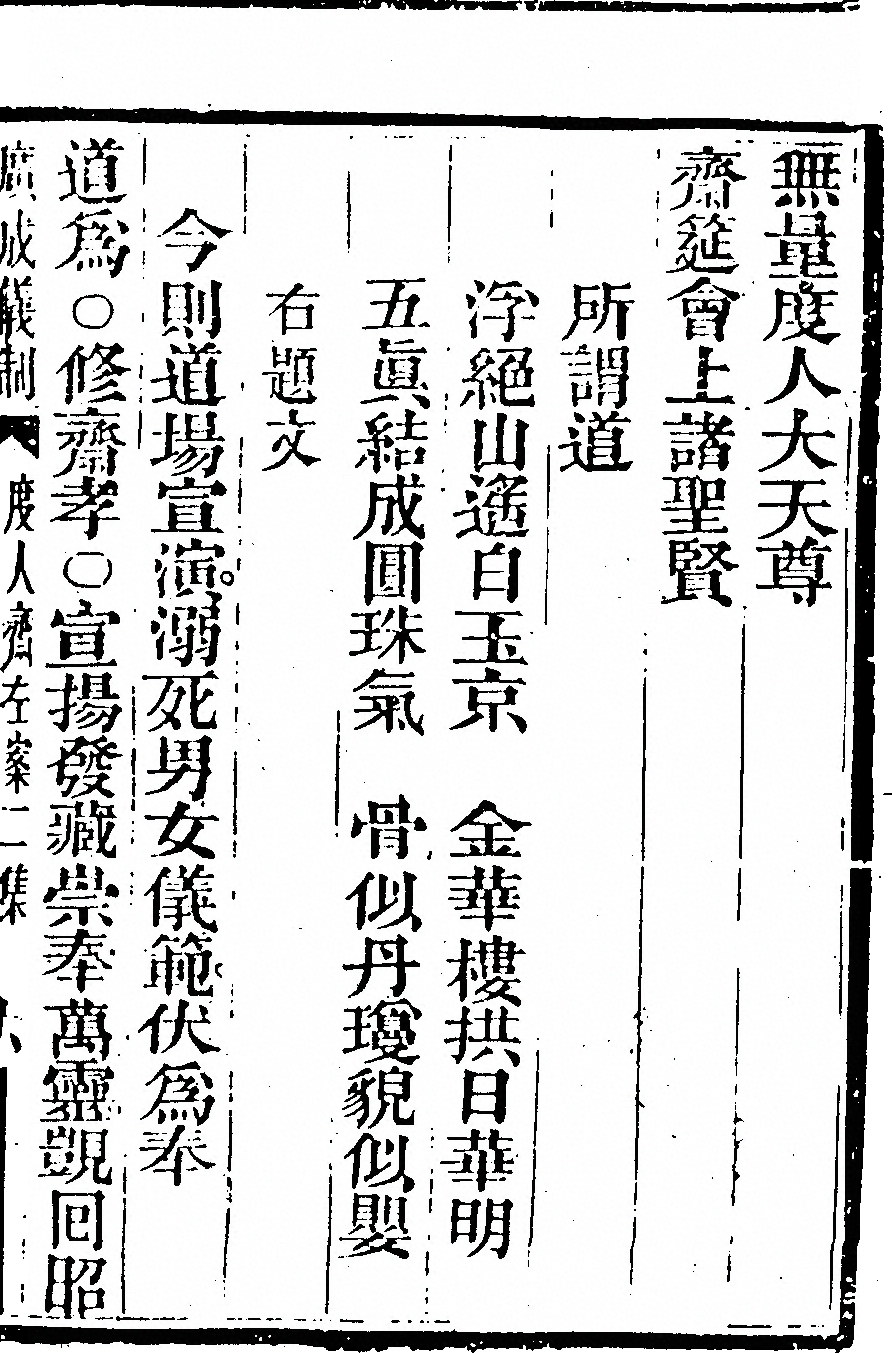 無量度人大天尊
齋筵會上諸聖賢
所謂道
浮絕山遙白玉京　金華樓拱日華明
五眞結成圓珠氣　骨似丹瓊貌似嬰
右題文
今則道場宣演。溺死男女儀範。伏爲奉
道爲○修齋孝○宣揚發藏崇奉萬靈覬回昭
廣成儀制　度人齋左案二集　六